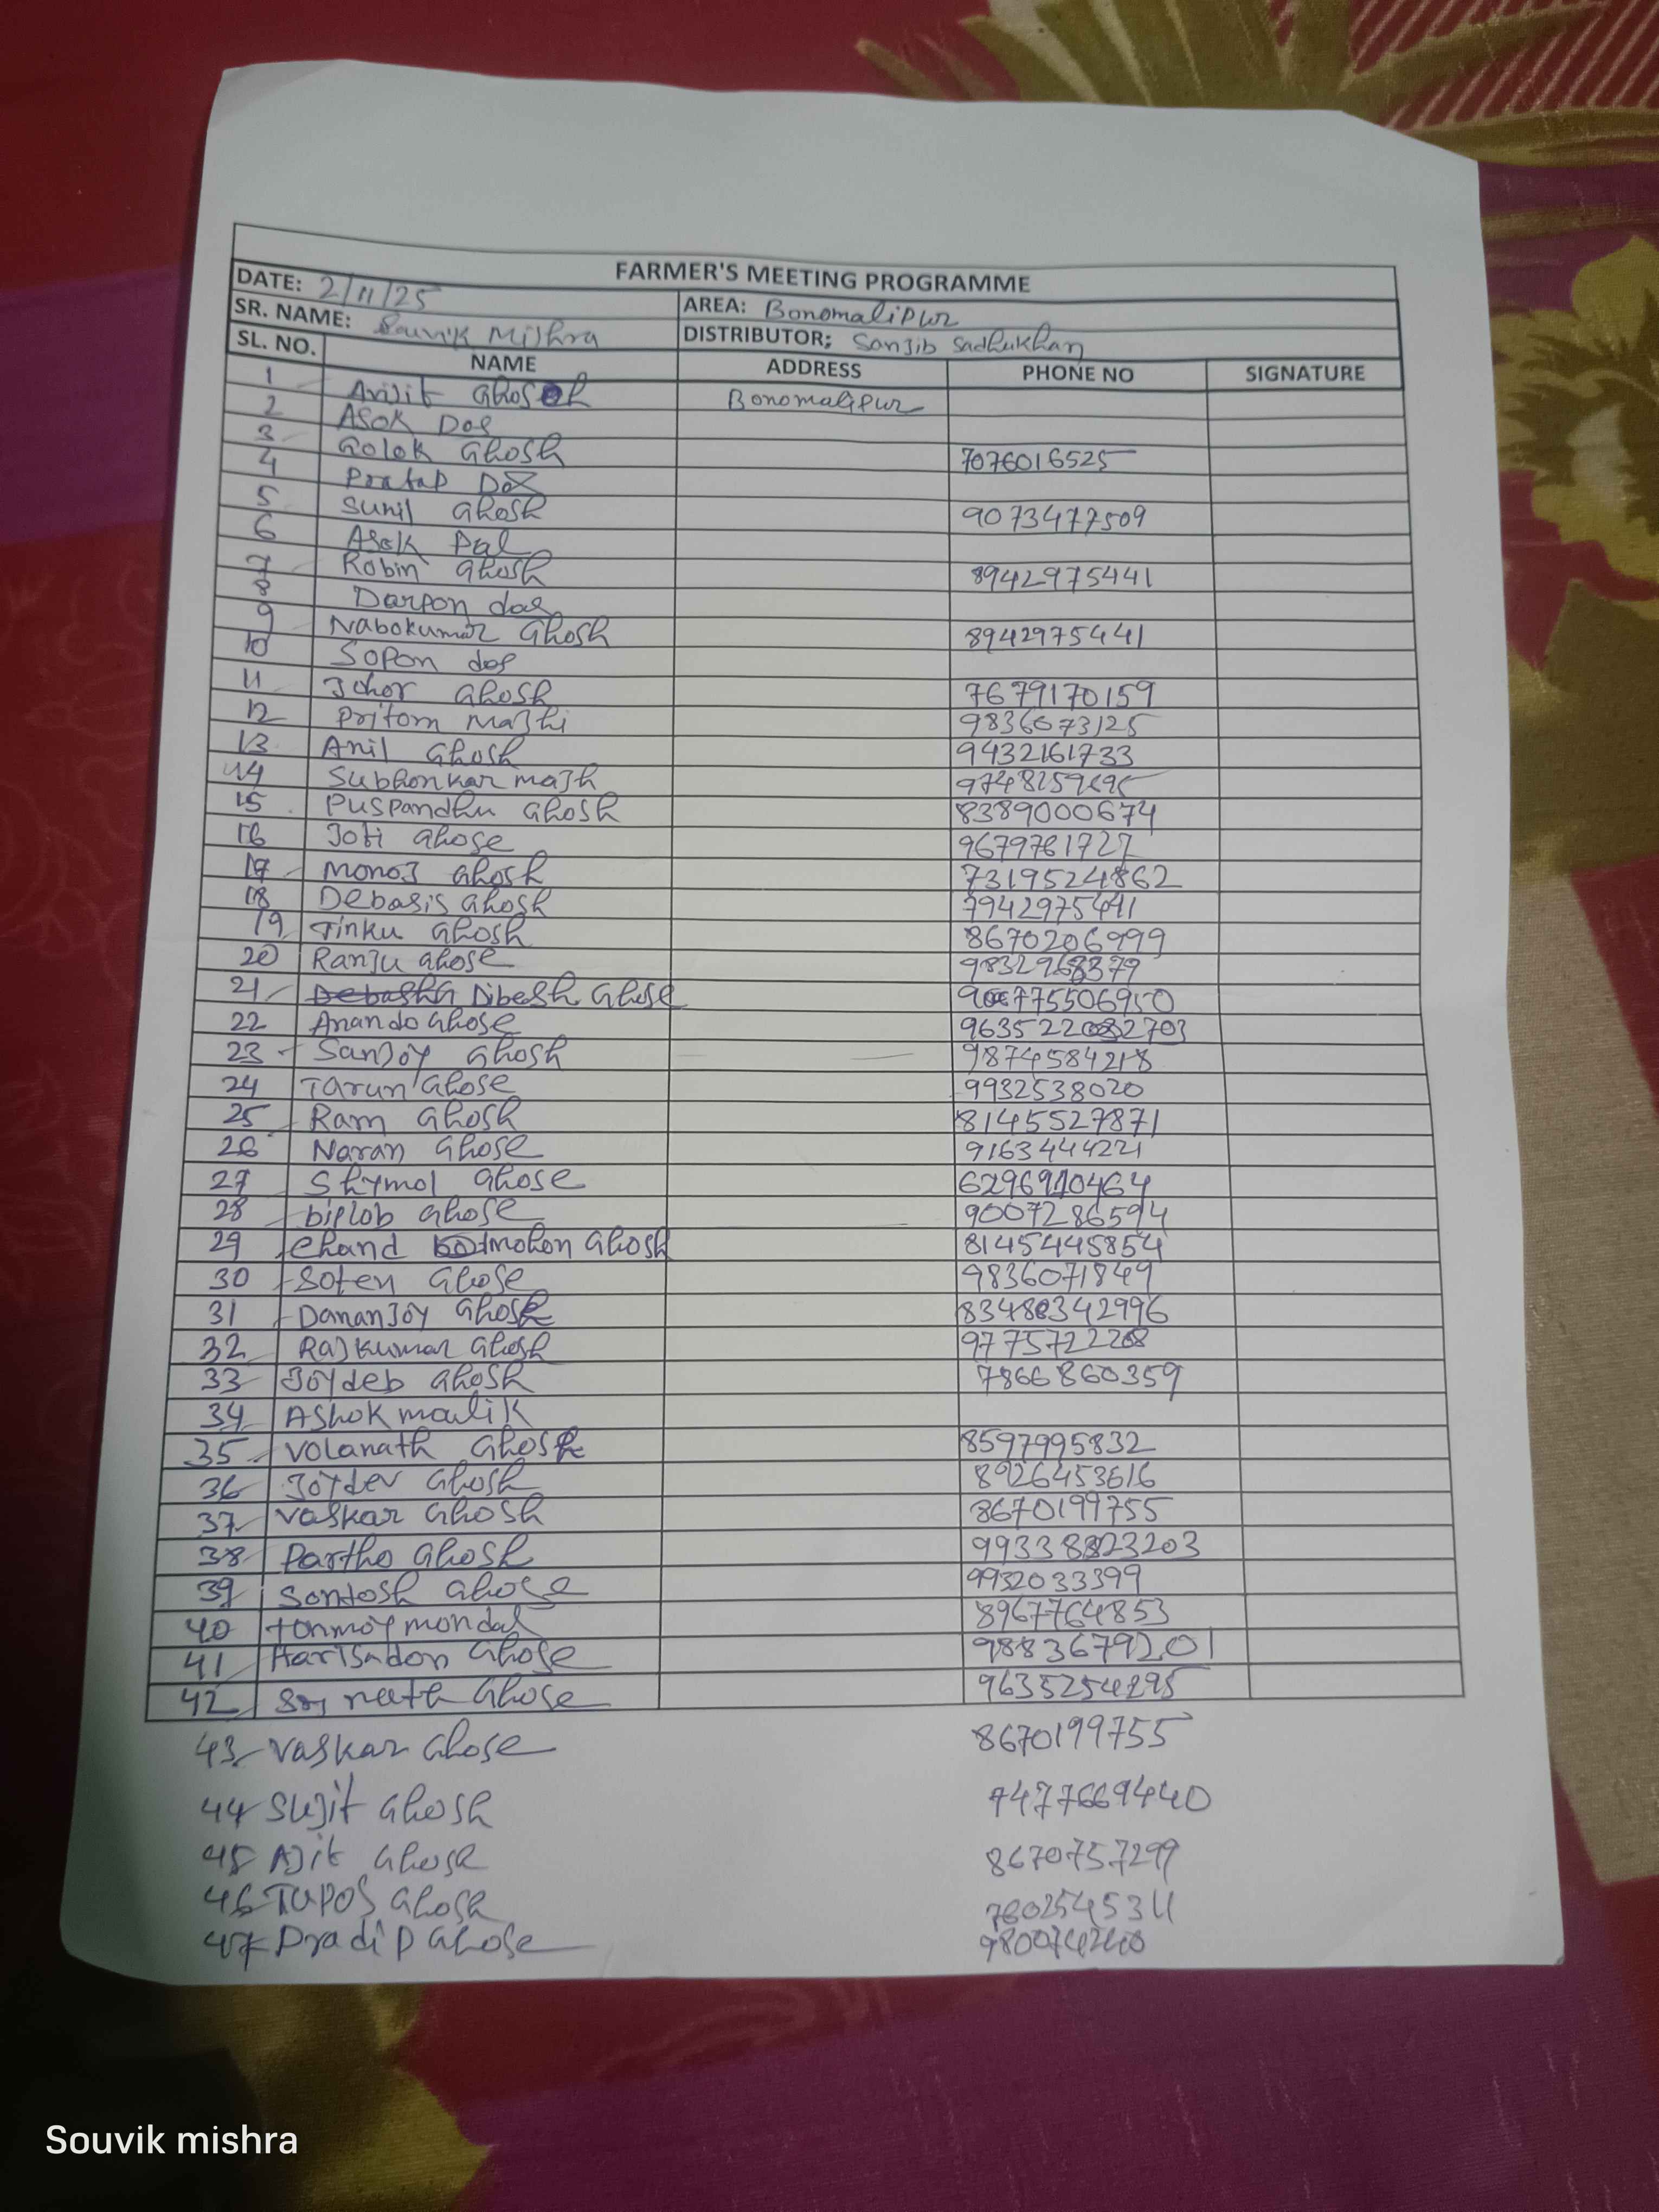 FARMER'S MEETING PROGRAMME
DATE: 2/11/25 AREA: Bonomalipur
SR. NAME: Souvik Mishra DISTRIBUTOR: Sanjib Sadhukhan
SL. NO. NAME ADDRESS PHONE NO SIGNATURE
1 Avijit Ghosh Bonomalipur
2 Asok Das
3 Golok Ghosh 7076016525
4 Pratap Das
5 Sunil Ghosh 9073477509
6 Asok Pal
7 Robin Ghosh 8942975441
8 Darpon das
9 Nabokumar Ghosh 8942975441
10 Sopon das
11 Johor Ghosh 7679170159
12 Pritom Majhi 9836073125
13 Anil Ghosh 9432161733
14 Subhonkar majh
15 Puspandhu Ghosh 8389000674
16 Joti Ghose 9679781727
17 Monoj Ghosh 7319524862
18 Debasis Ghosh 7942975441
19 Tinku Ghosh 8670206999
20 Ranju Ghose 9832968379
21 Dibesh Ghose
22 Anando Ghose
23 Sanjoy Ghosh 9874584218
24 Tarun Ghose 9932538020
25 Ram Ghosh 8145527871
26 Naran Ghose 9163444221
27 Shymol Ghose 6296910464
28 biplob Ghose 9007286594
29 Chand mohon Ghosh 8145445854
30 Soten Ghose 9836071849
31 Dananjoy Ghose
32 Rajkumar Ghosh 9775722268
33 Joydeb Ghosh 7866860359
34 Ashok malik
35 Volanath Ghosh 8597995832
36 Joydev Ghosh 8926453616
37 Vaskar Ghosh 8670199755
38 Partho Ghosh
39 Sontosh Ghose 9932033399
40 tonmoy mondal 8967764853
41 Harisadon Ghose 9883679201
42 Ghose 9635254295
43 Vaskar Ghose 8670199755
44 Sujit Ghosh 7477669440
45 Ajit Ghosh 8670757299
46 Tapos Ghosh 7602545311
47 Pradip Ghose
Souvik mishra